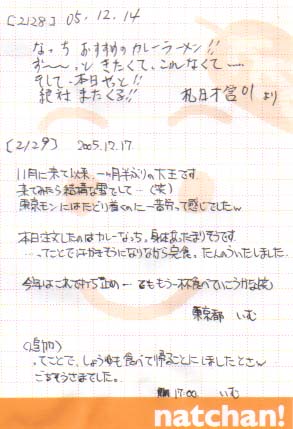 [2128] 05.12.14
なっち おすすめの カレーラーメン!!
ず〜〜っと きたくて、これなくて……
そして…本日やっと!!
絶対 またくる!!
札幌 より
[2129] 2005.12.17.
11月に来て以来、一ヶ月半ぶりの です。
来てみたら結構な雪でして…(笑)
東京モンにはたどり着くのに一苦労って感じでしたw
本日注文したのはカレーなっち。身体あったまりそうです
…ってことで汗かきそうになりながら完食。たんのういたしました。
今年はこれで打ち止め… でももう一杯食べていこうかな(笑)
東京都 いむ
(追加)
ってことで、しょうゆも食べて帰ることにしましたとさw
ごちそうさまでした。
17:00 いむ
natchan!